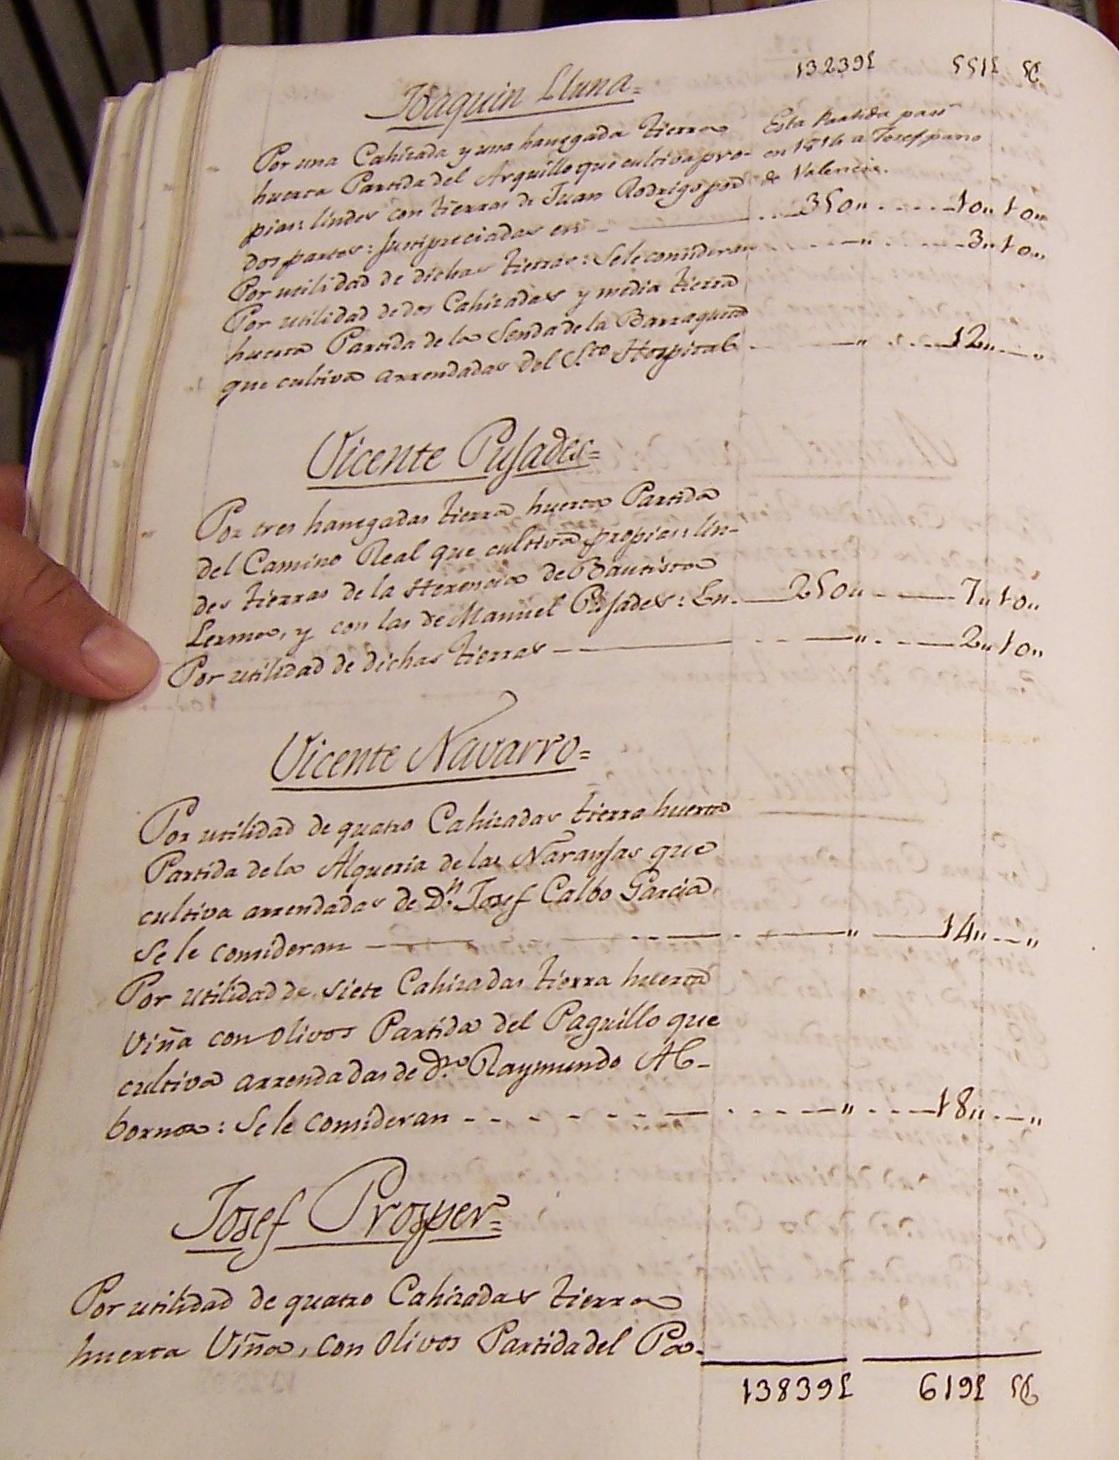 13239£ 551£
Joaquin Lluna=
Por una Cahizada y una hanegada tierra
huerta Partida del Arquillo que cultiva pro-
pias: lindes con tierras de Juan Rodrigo por
dos partes: Justipreciadas en 350,, 10,, 10,,
Esta Partida pasó
en 1814 a Josef
de Valencia.
Por utilidad de dichas tierras: Se le consideran ,, 3,, 10,,
Por utilidad de dos Cahizadas y media tierra
huerta Partida de la Senda de la Barraqueta
que cultiva arrendadas del Sto. Hospital ,, 12,, ,,
Vicente Pusades=
Por tres hanegadas tierra huerta Partida
del Camino Real que cultiva propias: lin-
des tierras de la Herencia de Bautista
Lerma, y con las de Manuel Pusades: En 250,, 7,, 10,,
Por utilidad de dichas tierras ,, 2,, 10,,
Vicente Navarro=
Por utilidad de quatro Cahizadas tierra huerta
Partida de la Alqueria de las Naranjas que
cultiva arrendadas de Dn. Josef Calbo Garcia,
se le consideran ,, 14,, ,,
Por utilidad de siete Cahizadas tierra huerta
Viña con olivos Partida del Paguillo que
cultiva arrendadas de Dn. Raymundo Al-
bornoz: Se le consideran ,, 18,, ,,
Josef Prosper=
Por utilidad de quatro Cahizadas tierra
huerta Viña, con olivos Partida del Pa-
13839£ 619£